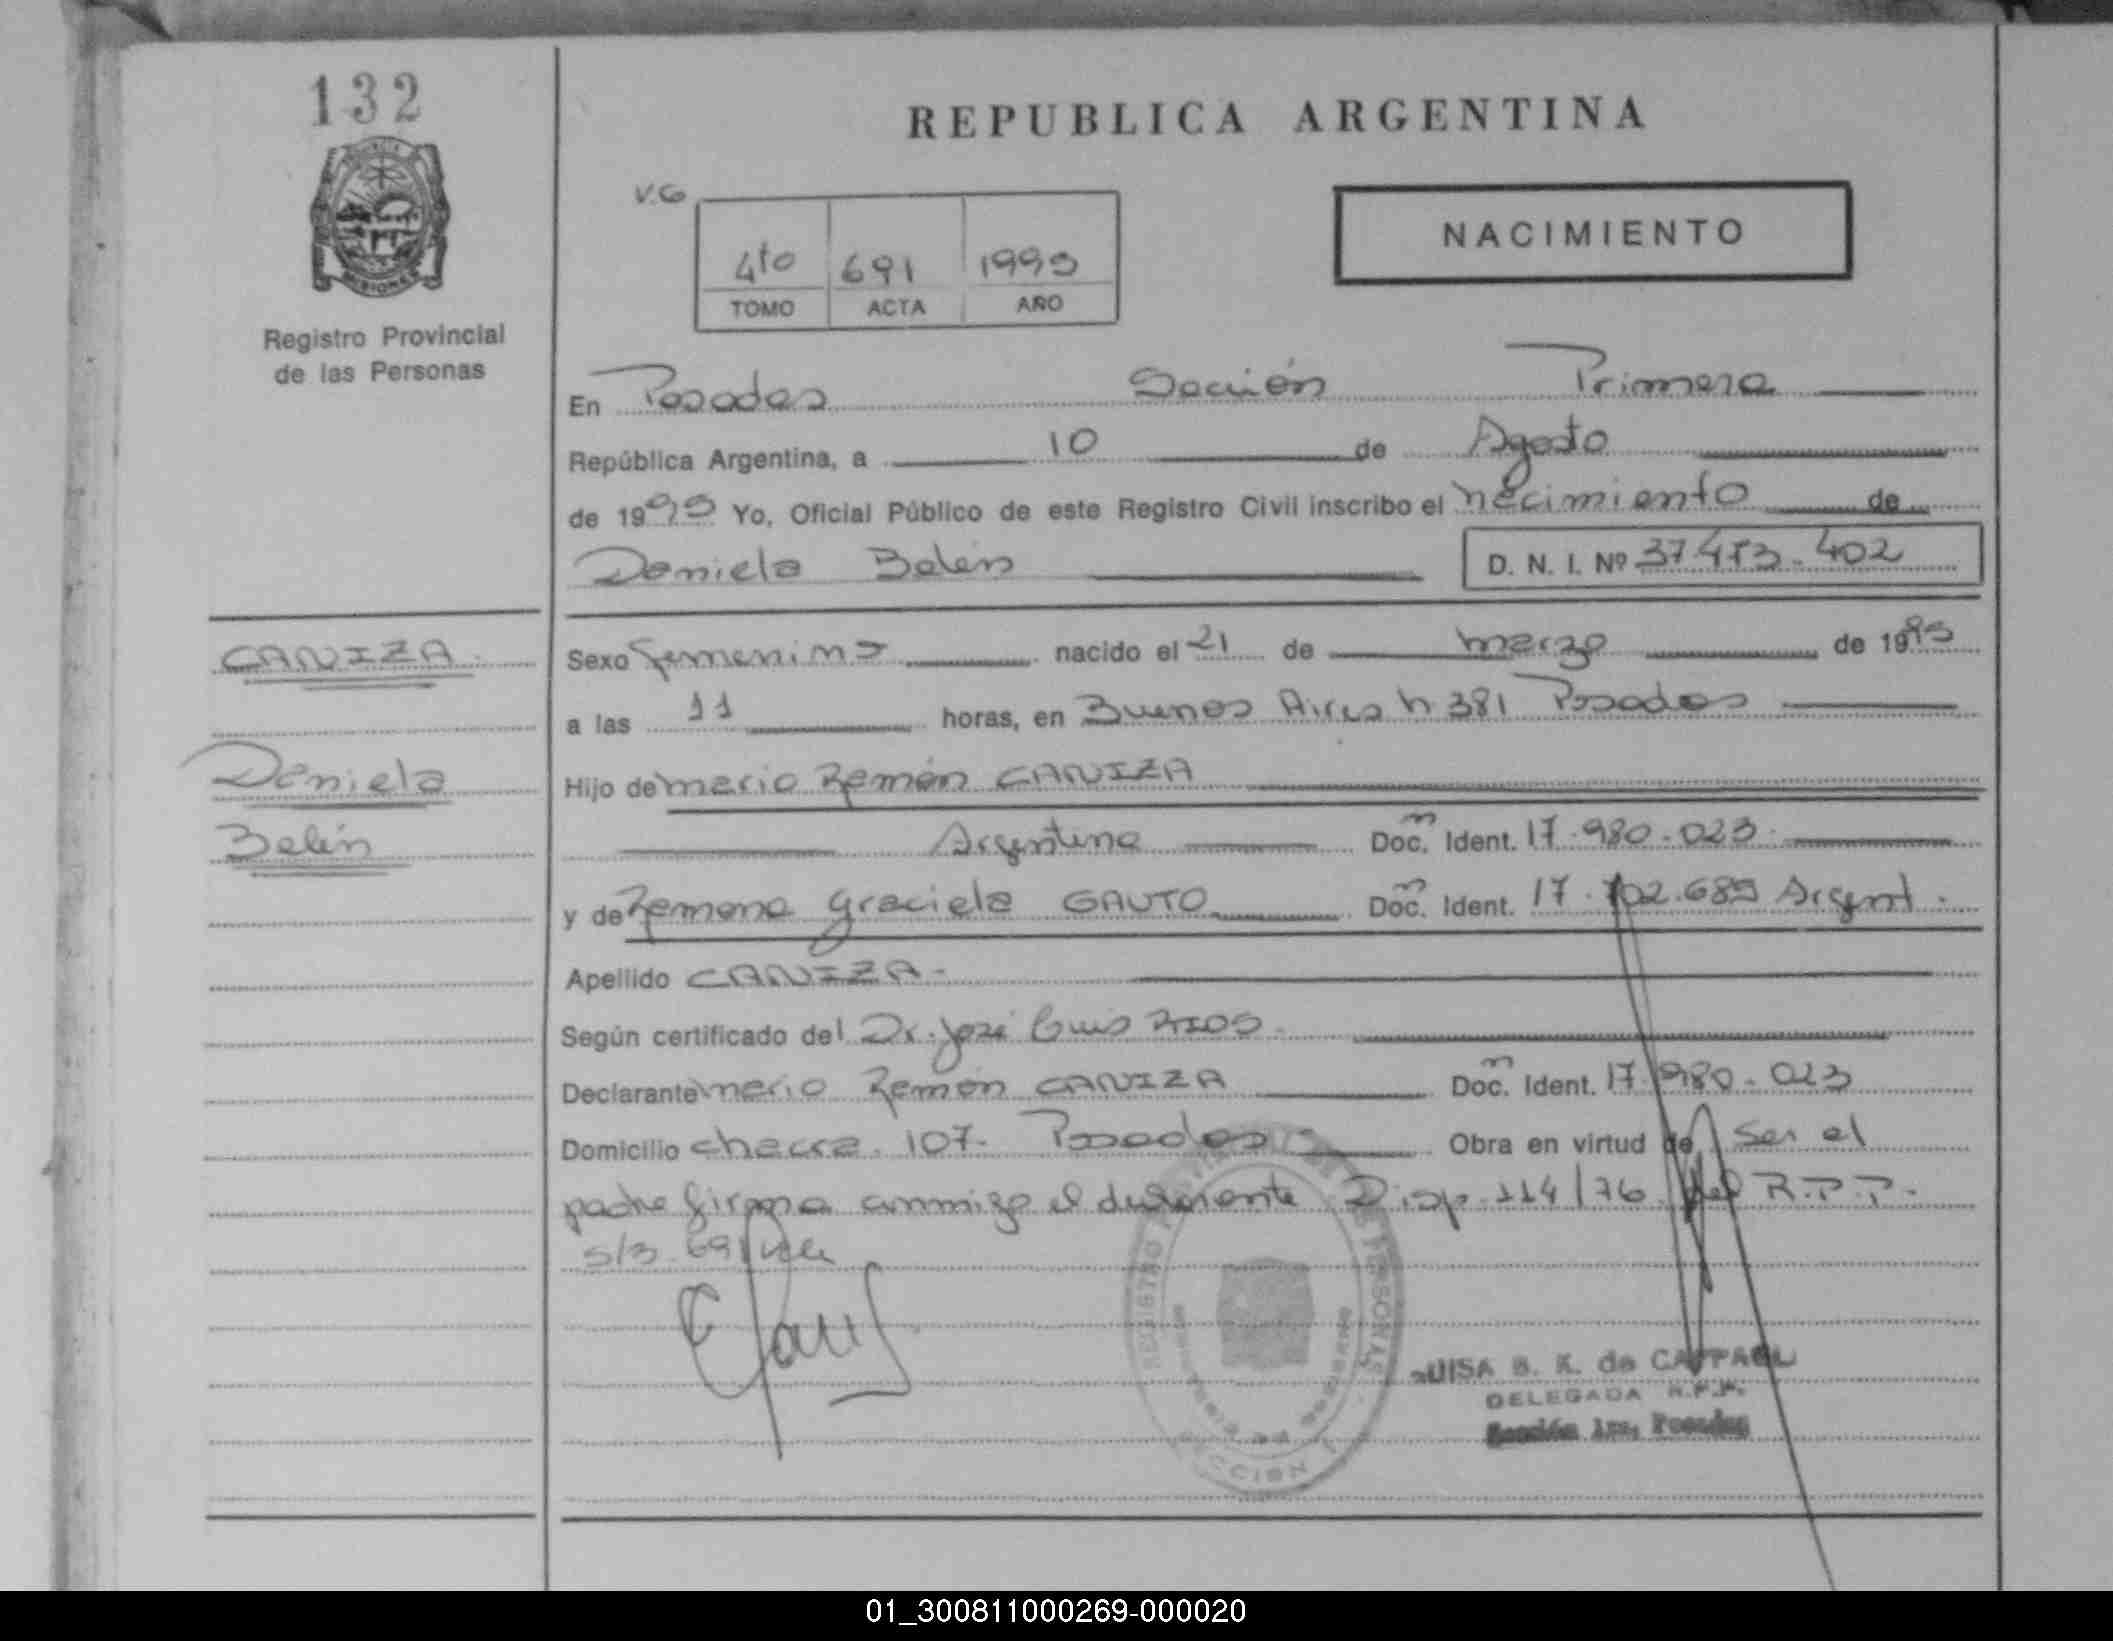 132
REPUBLICA ARGENTINA
V.G
NACIMIENTO
4to 691 1993
TOMO ACTA AÑO
Registro Provincial
de las Personas
En Posadas Sección Primera
República Argentina, a 10 de Agosto
de 1993 Yo, Oficial Público de este Registro Civil inscribo el nacimiento de
Daniela Belén D. N. I. Nº 37.473.402
CANIZA
Sexo femenino nacido el 21 de marzo de 1993
a las 11 horas, en Buenos Aires n 381 Posadas
Daniela
Hijo de Mario Ramón CANIZA
Belén
Argentina Doc. Ident. 17.980.023
y de Ramona Graciela GAUTO Doc. Ident. 17.702.689 Argent.
Apellido CANIZA.
Según certificado del Dr. José Luis RIOS.
Declarante Mario Ramón CANIZA Doc. Ident. 17.980.023
Domicilio chacra 107. Posadas Obra en virtud de Ser el
padre firma conmigo el declarante Disp. 114/76 del R.P.P.
S/3. 691 vale
REGISTRO PROVINCIAL DE LAS PERSONAS
SECCION 1
LUISA B. K. de
DELEGADA R.P.P.
Sección 1ra. Posadas
01_300811000269-000020